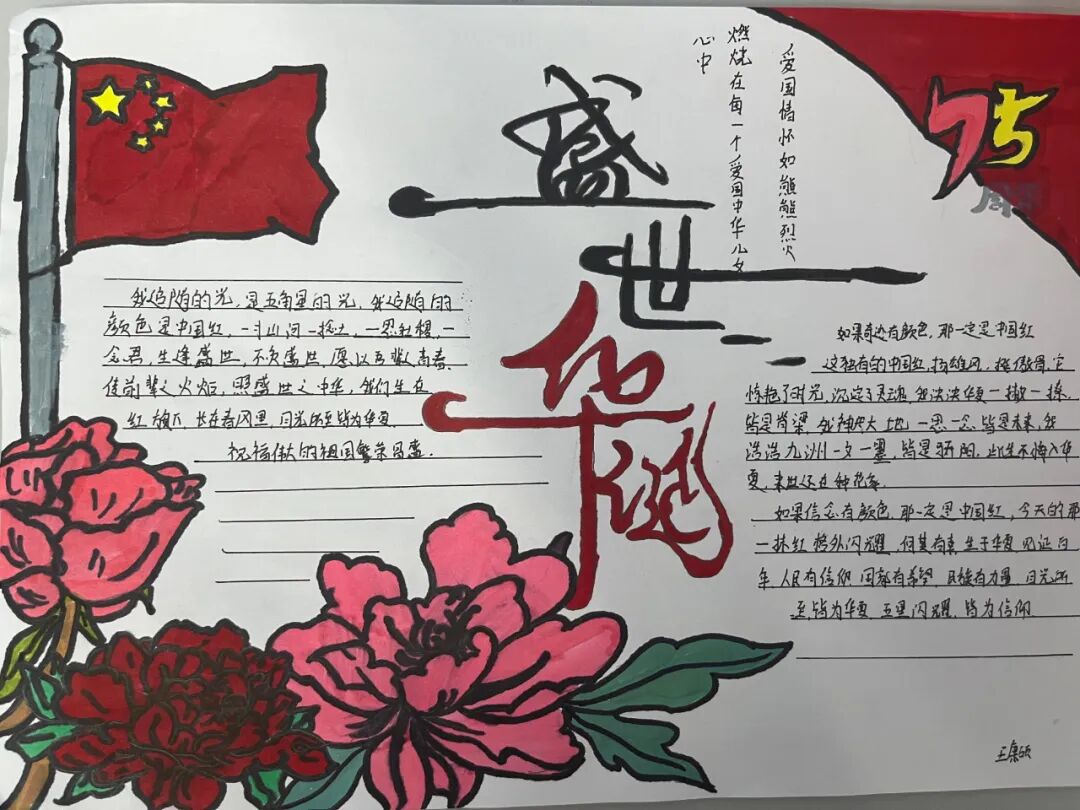 盛世华诞
爱国情怀如熊熊烈火
燃烧在每一个爱国中华儿女
心中
75
周年
我追随的光,是五角星的光,我追随的
颜色是中国红,一寸山河一捻土,一思社稷,一
念君,生逢盛世,不负盛世,愿以吾辈青春,
使前辈之火炬,照盛世之中华,我们生在
红旗下,长在春风里,目光所至皆为华夏
祝福伟大的祖国繁荣昌盛.
如果奇迹有颜色,那一定是中国红
这独有的中国红,扬雄风,挺傲骨,它
惊艳了时光,沉淀了灵魂,我泱泱华夏一撇一捺,
皆是脊梁,我神州大地一思一念皆是未来,我
浩浩九洲一文一墨,皆是骄阳,此生不悔入华
夏,来世还在种花家.
如果信念有颜色,那一定是中国红,今天的那
一抹红格外闪耀,何其有幸,生于华夏,见证百
年,人民有信仰,国都有希望,且接有力量,目光所
至,皆为华夏,五星闪耀,皆为信仰